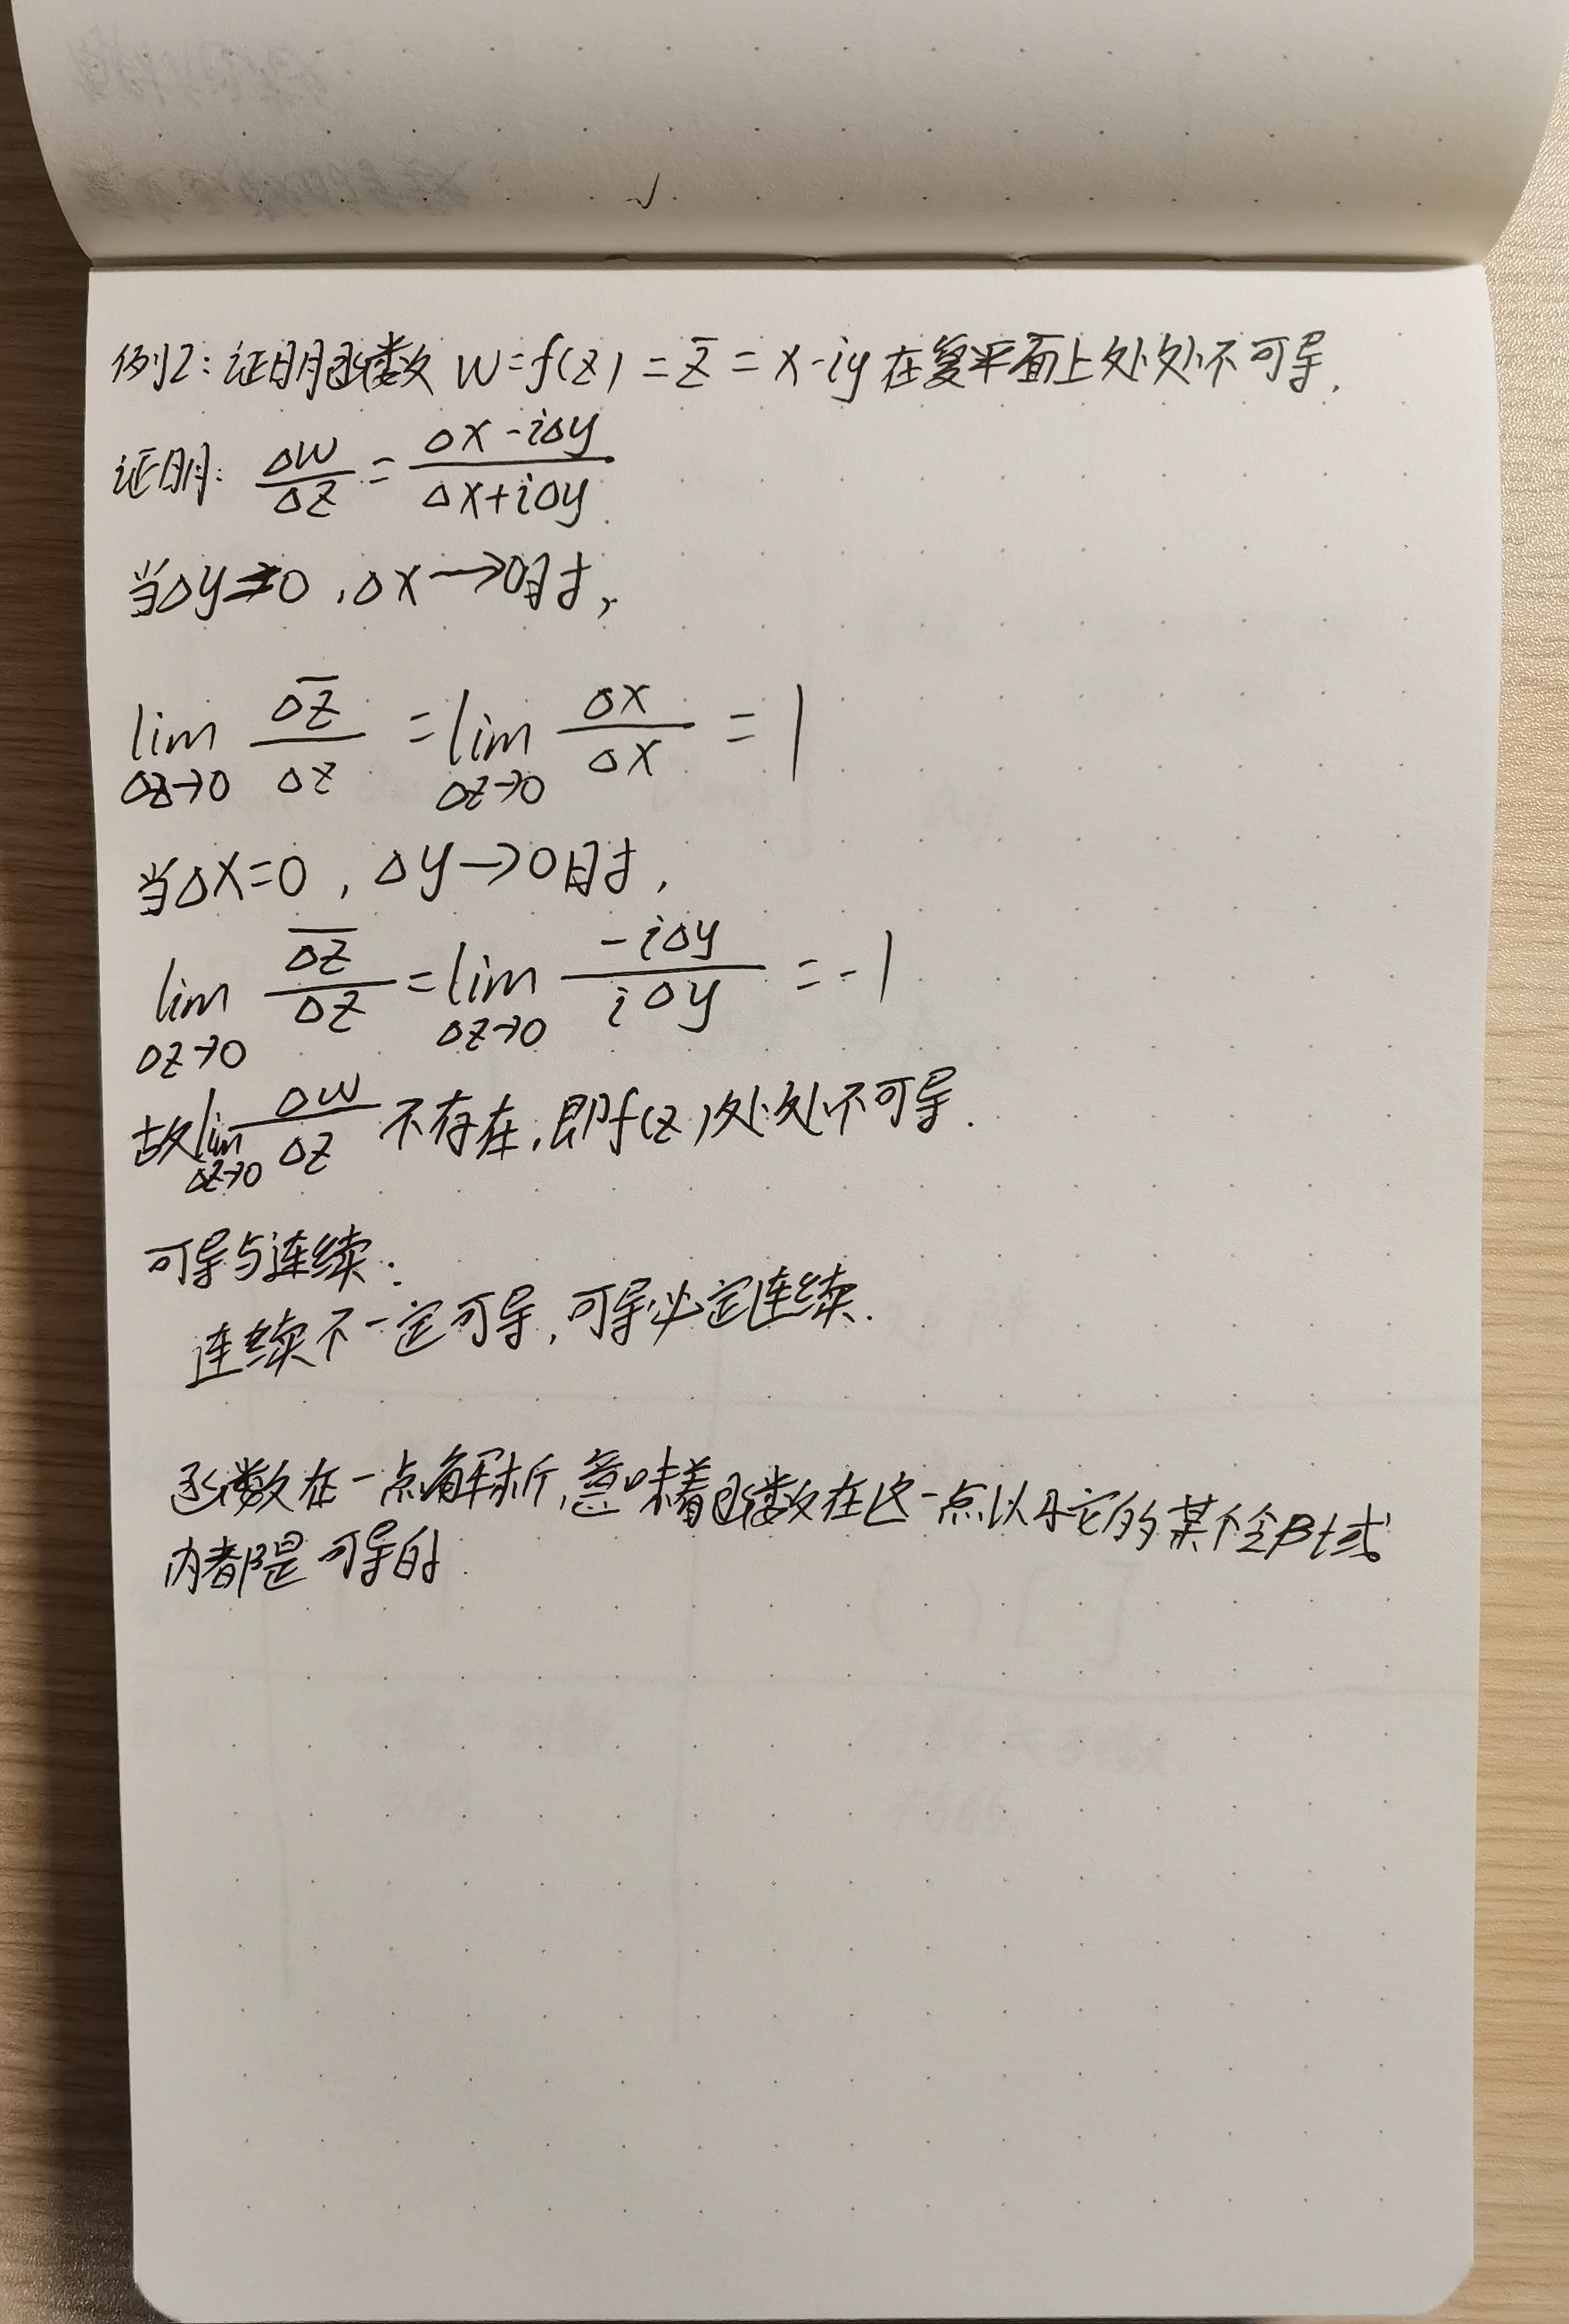 例2：证明函数 w=f(z)=z̄=x-iy 在复平面上处处不可导.
证明: Δw/Δz = (Δx-iΔy)/(Δx+iΔy)
当Δy=0,Δx→0时,
lim_{Δz→0} \overline{Δz}/Δz = lim_{Δz→0} Δx/Δx = 1
当Δx=0, Δy→0时,
lim_{Δz→0} \overline{Δz}/Δz = lim_{Δz→0} -iΔy/iΔy = -1
故lim_{Δz→0} Δw/Δz 不存在,即f(z)处处不可导.
可导与连续:
连续不一定可导,可导必定连续.
函数在一点解析,意味着函数在这一点以及它的某个邻域
内都是可导的.